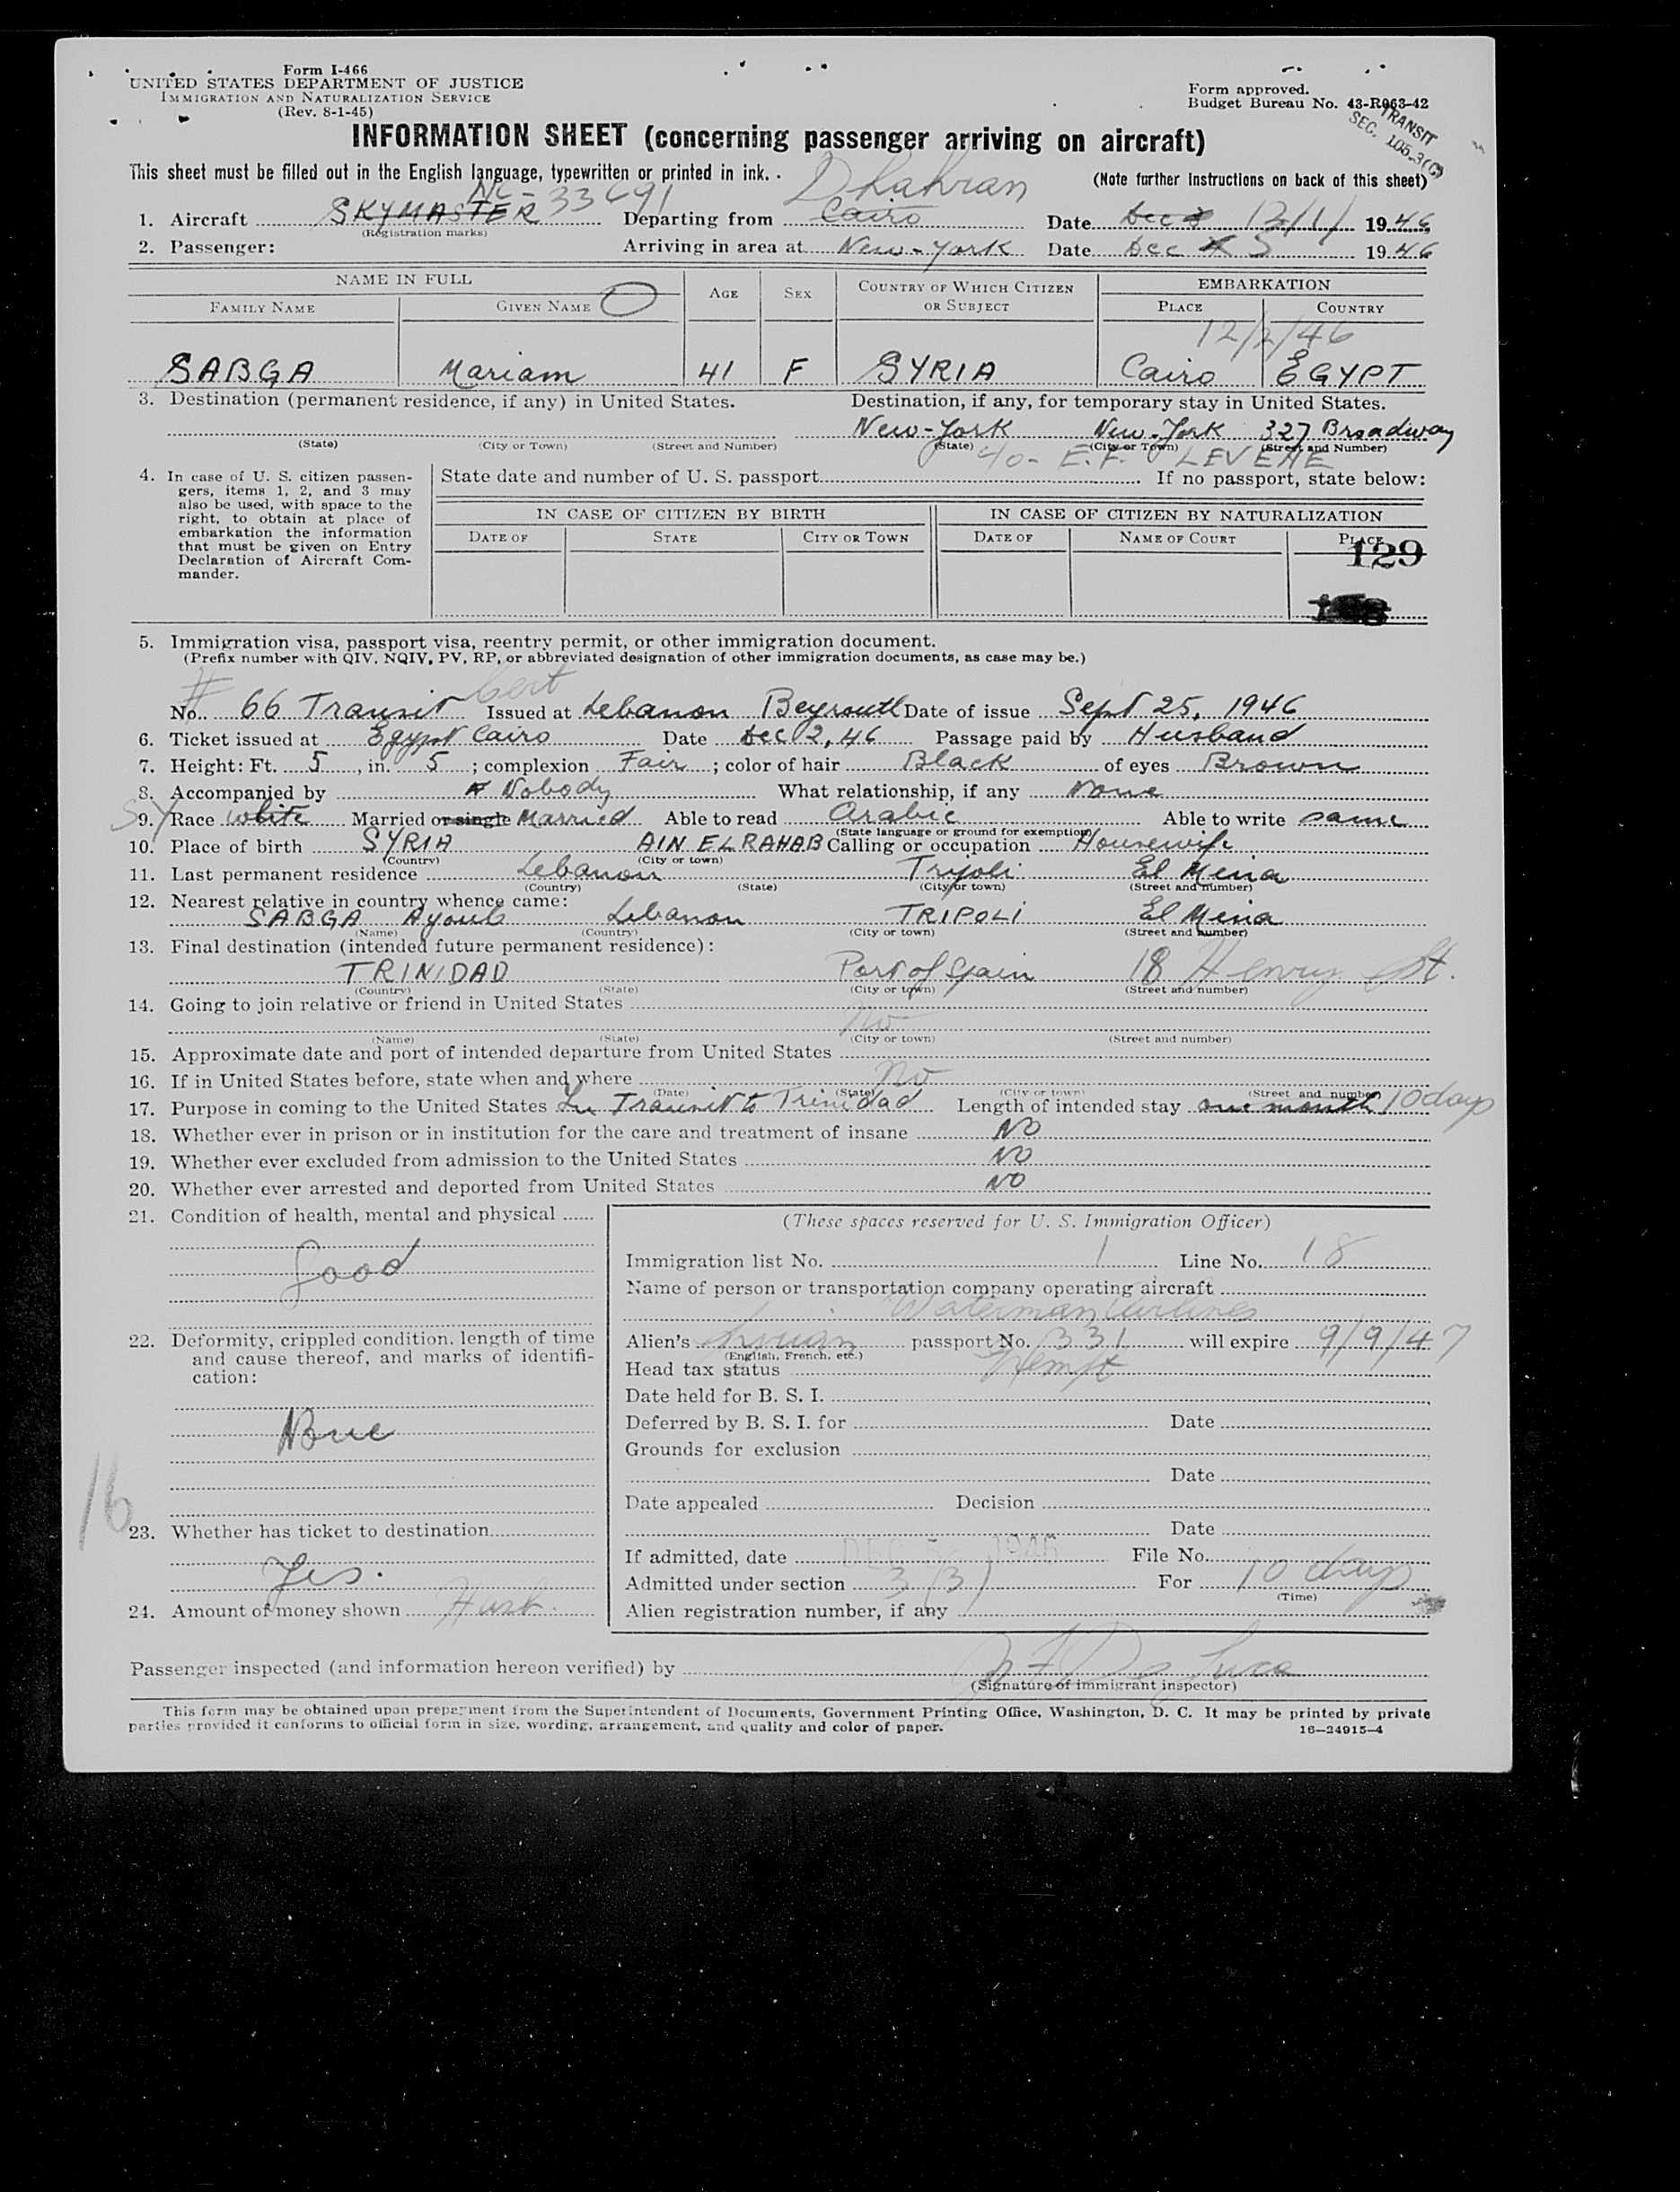 Form I-466
UNITED STATES DEPARTMENT OF JUSTICE
IMMIGRATION AND NATURALIZATION SERVICE
(Rev. 8-1-45)
Form approved.
Budget Bureau No. 43-R063-42
TRANSIT
SEC. 105.3(C)
INFORMATION SHEET (concerning passenger arriving on aircraft)
This sheet must be filled out in the English language, typewritten or printed in ink.
(Note further instructions on back of this sheet)
NC-33691 Dhahran
1. Aircraft SKYMASTER Departing from Cairo Date Dec 12/1/ 1946
(Registration marks)
2. Passenger: Arriving in area at New-York Date Dec 5 1946
NAME IN FULL AGE SEX COUNTRY OF WHICH CITIZEN OR SUBJECT EMBARKATION
FAMILY NAME GIVEN NAME PLACE COUNTRY
12/2/46
SABGA Mariam 41 F SYRIA Cairo EGYPT
3. Destination (permanent residence, if any) in United States. Destination, if any, for temporary stay in United States.
New-York New-York 327 Broadway
(State) (City or Town) (Street and Number) (State) (City or Town) (Street and Number)
c/o- E.F. LEVENE
4. In case of U. S. citizen passengers, items 1, 2, and 3 may also be used, with space to the right, to obtain at place of embarkation the information that must be given on Entry Declaration of Aircraft Commander.
State date and number of U. S. passport If no passport, state below:
IN CASE OF CITIZEN BY BIRTH IN CASE OF CITIZEN BY NATURALIZATION
DATE OF STATE CITY OR TOWN DATE OF NAME OF COURT PLACE
129
5. Immigration visa, passport visa, reentry permit, or other immigration document.
(Prefix number with QIV, NQIV, PV, RP, or abbreviated designation of other immigration documents, as case may be.)
# Cert
No. 66 Transit Issued at Lebanon Beyrouth Date of issue Sept 25, 1946
6. Ticket issued at Egypt Cairo Date Dec 2, 46 Passage paid by Husband
7. Height: Ft. 5, in. 5; complexion Fair; color of hair Black of eyes Brown
8. Accompanied by Nobody What relationship, if any None
SY 9. Race white Married or single Married Able to read Arabic Able to write same
(State language or ground for exemption)
10. Place of birth SYRIA AIN EL RAHAB Calling or occupation Housewife
(Country) (City or town)
11. Last permanent residence Lebanon Tripoli El Mina
(Country) (State) (City or town) (Street and number)
12. Nearest relative in country whence came:
SABGA Ayoub Lebanon TRIPOLI El Mina
(Name) (Country) (City or town) (Street and number)
13. Final destination (intended future permanent residence):
TRINIDAD Port of Spain 18 Henry St.
(Country) (State) (City or town) (Street and number)
14. Going to join relative or friend in United States
No
(Name) (State) (City or town) (Street and number)
15. Approximate date and port of intended departure from United States
16. If in United States before, state when and where No
(Date) (State) (City or town) (Street and number)
17. Purpose in coming to the United States In Transit to Trinidad Length of intended stay one month 10 days
18. Whether ever in prison or in institution for the care and treatment of insane NO
19. Whether ever excluded from admission to the United States NO
20. Whether ever arrested and deported from United States NO
21. Condition of health, mental and physical
Good
22. Deformity, crippled condition, length of time and cause thereof, and marks of identification:
None
16
23. Whether has ticket to destination
Yes.
24. Amount of money shown
(These spaces reserved for U. S. Immigration Officer)
Immigration list No. 1 Line No. 18
Name of person or transportation company operating aircraft
Waterman Airlines
Alien's Syrian passport No. 331 will expire 9/9/47
(English, French, etc.)
Head tax status Exempt
Date held for B. S. I.
Deferred by B. S. I. for Date
Grounds for exclusion
Date
Date appealed Decision
Date
If admitted, date DEC 5 1946 File No.
Admitted under section 3 (3) For 10 days
(Time)
Alien registration number, if any
Passenger inspected (and information hereon verified) by
(Signature of immigrant inspector)
This form may be obtained upon prepayment from the Superintendent of Documents, Government Printing Office, Washington, D. C. It may be printed by private
parties provided it conforms to official form in size, wording, arrangement, and quality and color of paper. 16—24915-4